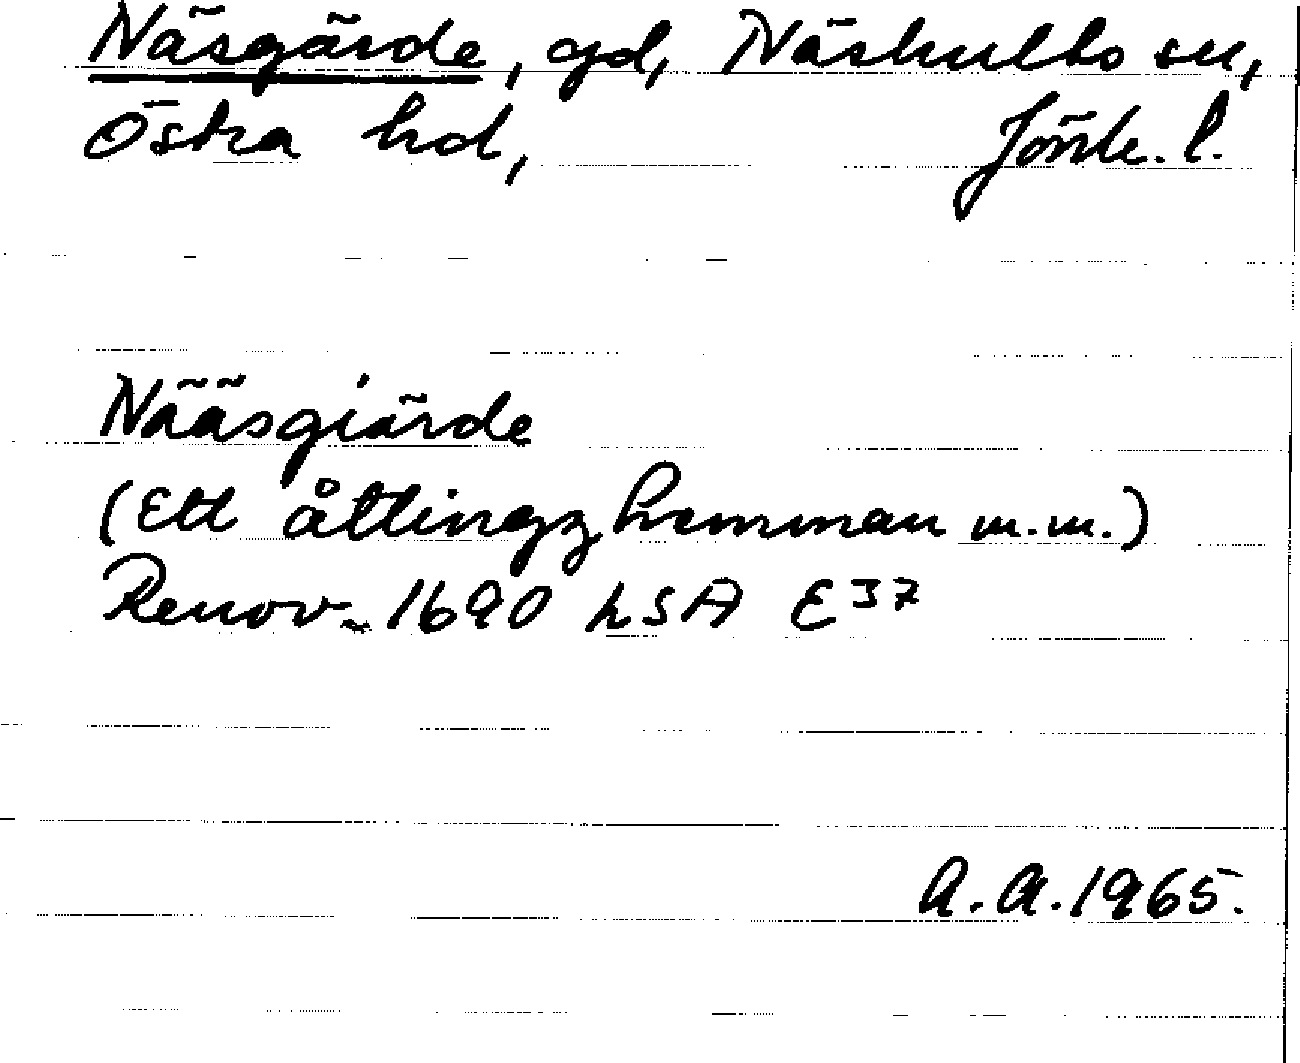 Näsgärde, gd, Näshults sn,
Östra hd, Jönk. l.
Nääsgiärde
(Ett åttingz hemman m.m.)
Renov. 1690 LSA E37
A.A. 1965.